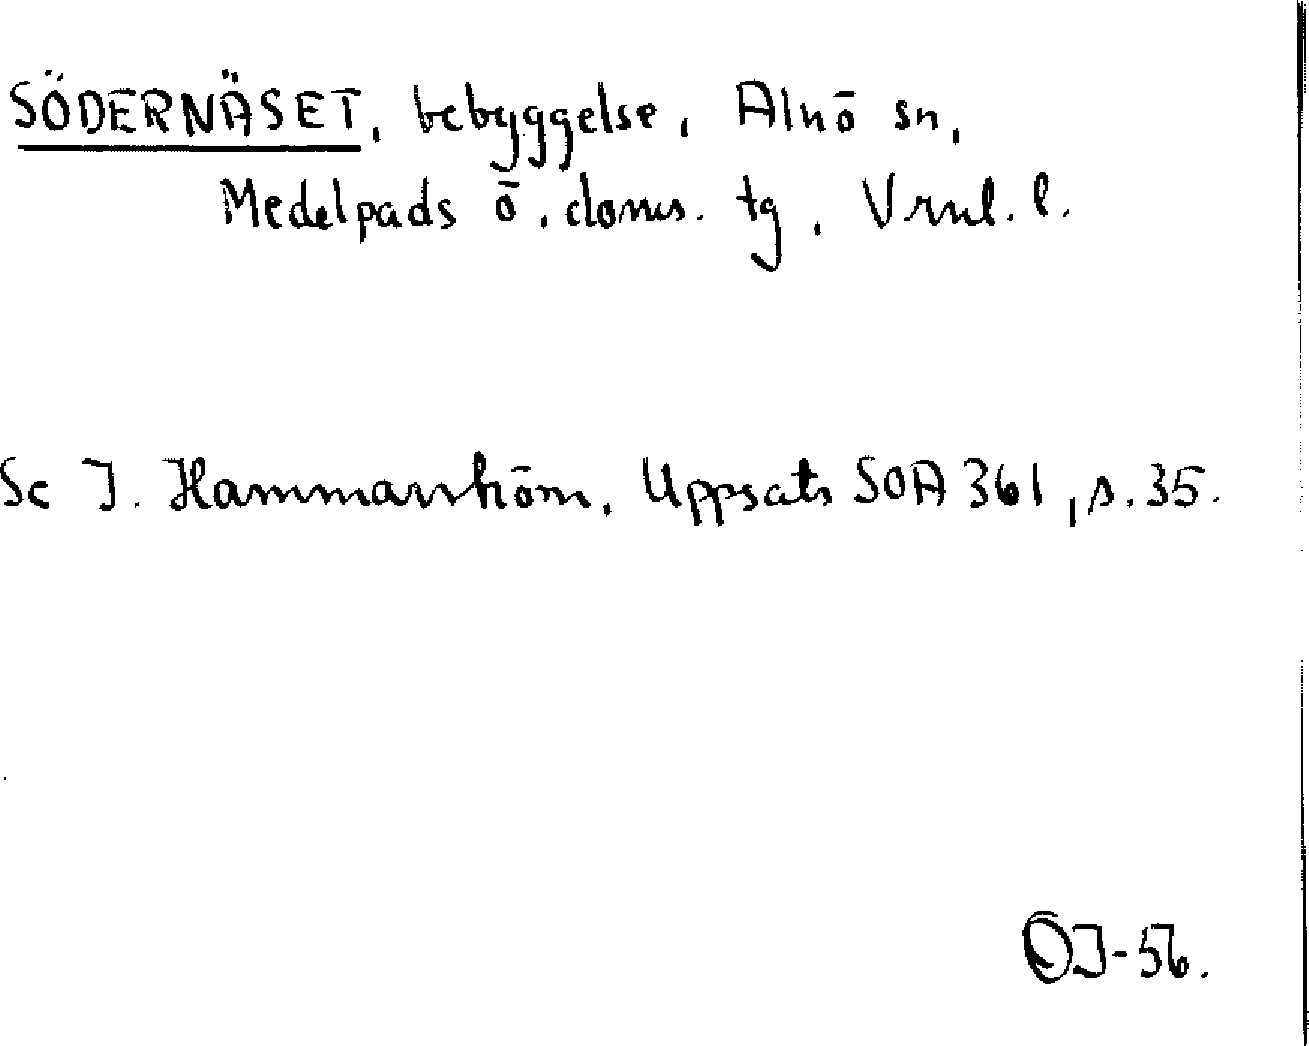 SÖDERNÄSET, bebyggelse, Alnö sn,
Medelpads ö. doms. tg, Vrnl. l.
Se J. Hammarström, Uppsats SOA 361, s. 35.
ÖJ-56.